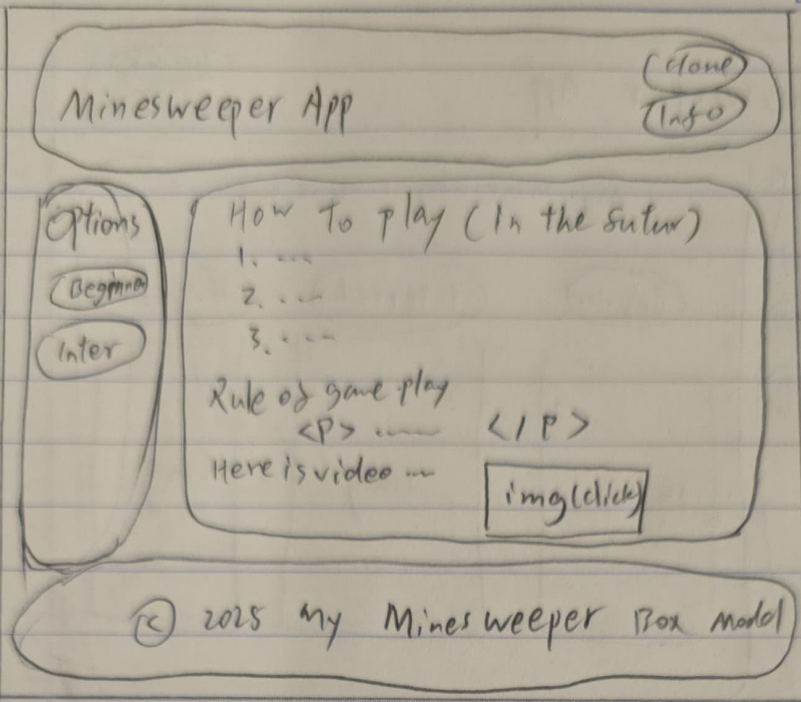 Minesweeper App
Clone
Info
Options
Beginner
Inter
How To play (In the futur)
1. ...
2. ...
3. ....
Rule of game play
<P> ...... </P>
Here is video ...
img(click)
© 2025 my Minesweeper Box Model